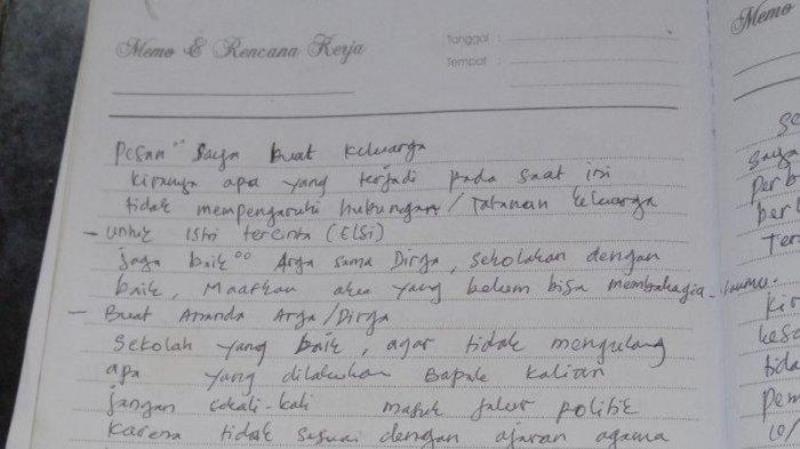 Memo & Rencana Kerja
Tanggal :
Tempat :
Memo
Pesan°° saya buat keluarga
kiranya apa yang terjadi pada saat ini
tidak mempengaruhi hubungan / Tatanan keluarga
- untuk istri tercinta (ELSi)
jaga baik°° Arga sama Dirga, sekolakan dengan
baik, Maafkan aku yang belum bisa membahagia-kanmu.
- Buat Ananda Arga/Dirga
Sekolah yang baik, agar tidak mengulang
apa yang dilakukan Bapak kalian
jangan sekali-kali masuk jalur politik
karena tidak sesuai dengan ajaran agama
se
saya
perb
berl
Ter
kir
kesa
tida
pem
10/